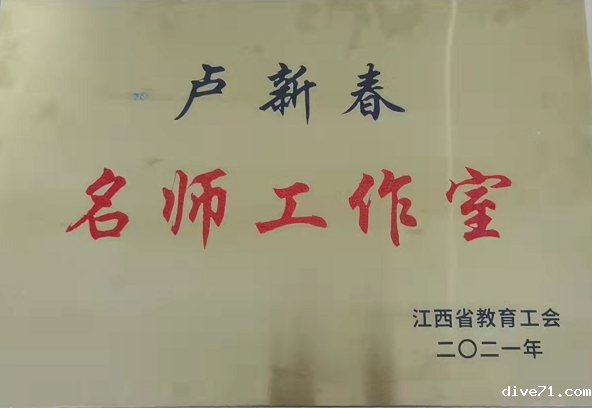 卢新春
名师工作室
江西省教育工会
二〇二一年
dive71.com